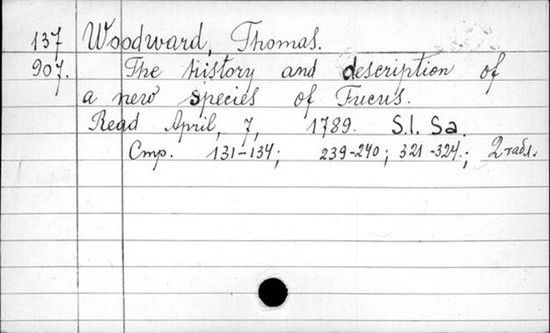 137 Woodward, Thomas.
907. The history and description of
a new species of Fucus.
Read April, 7, 1789. S.l. Sa.
Стр. 131-134; 239-240; 321-324.; 2 табл.